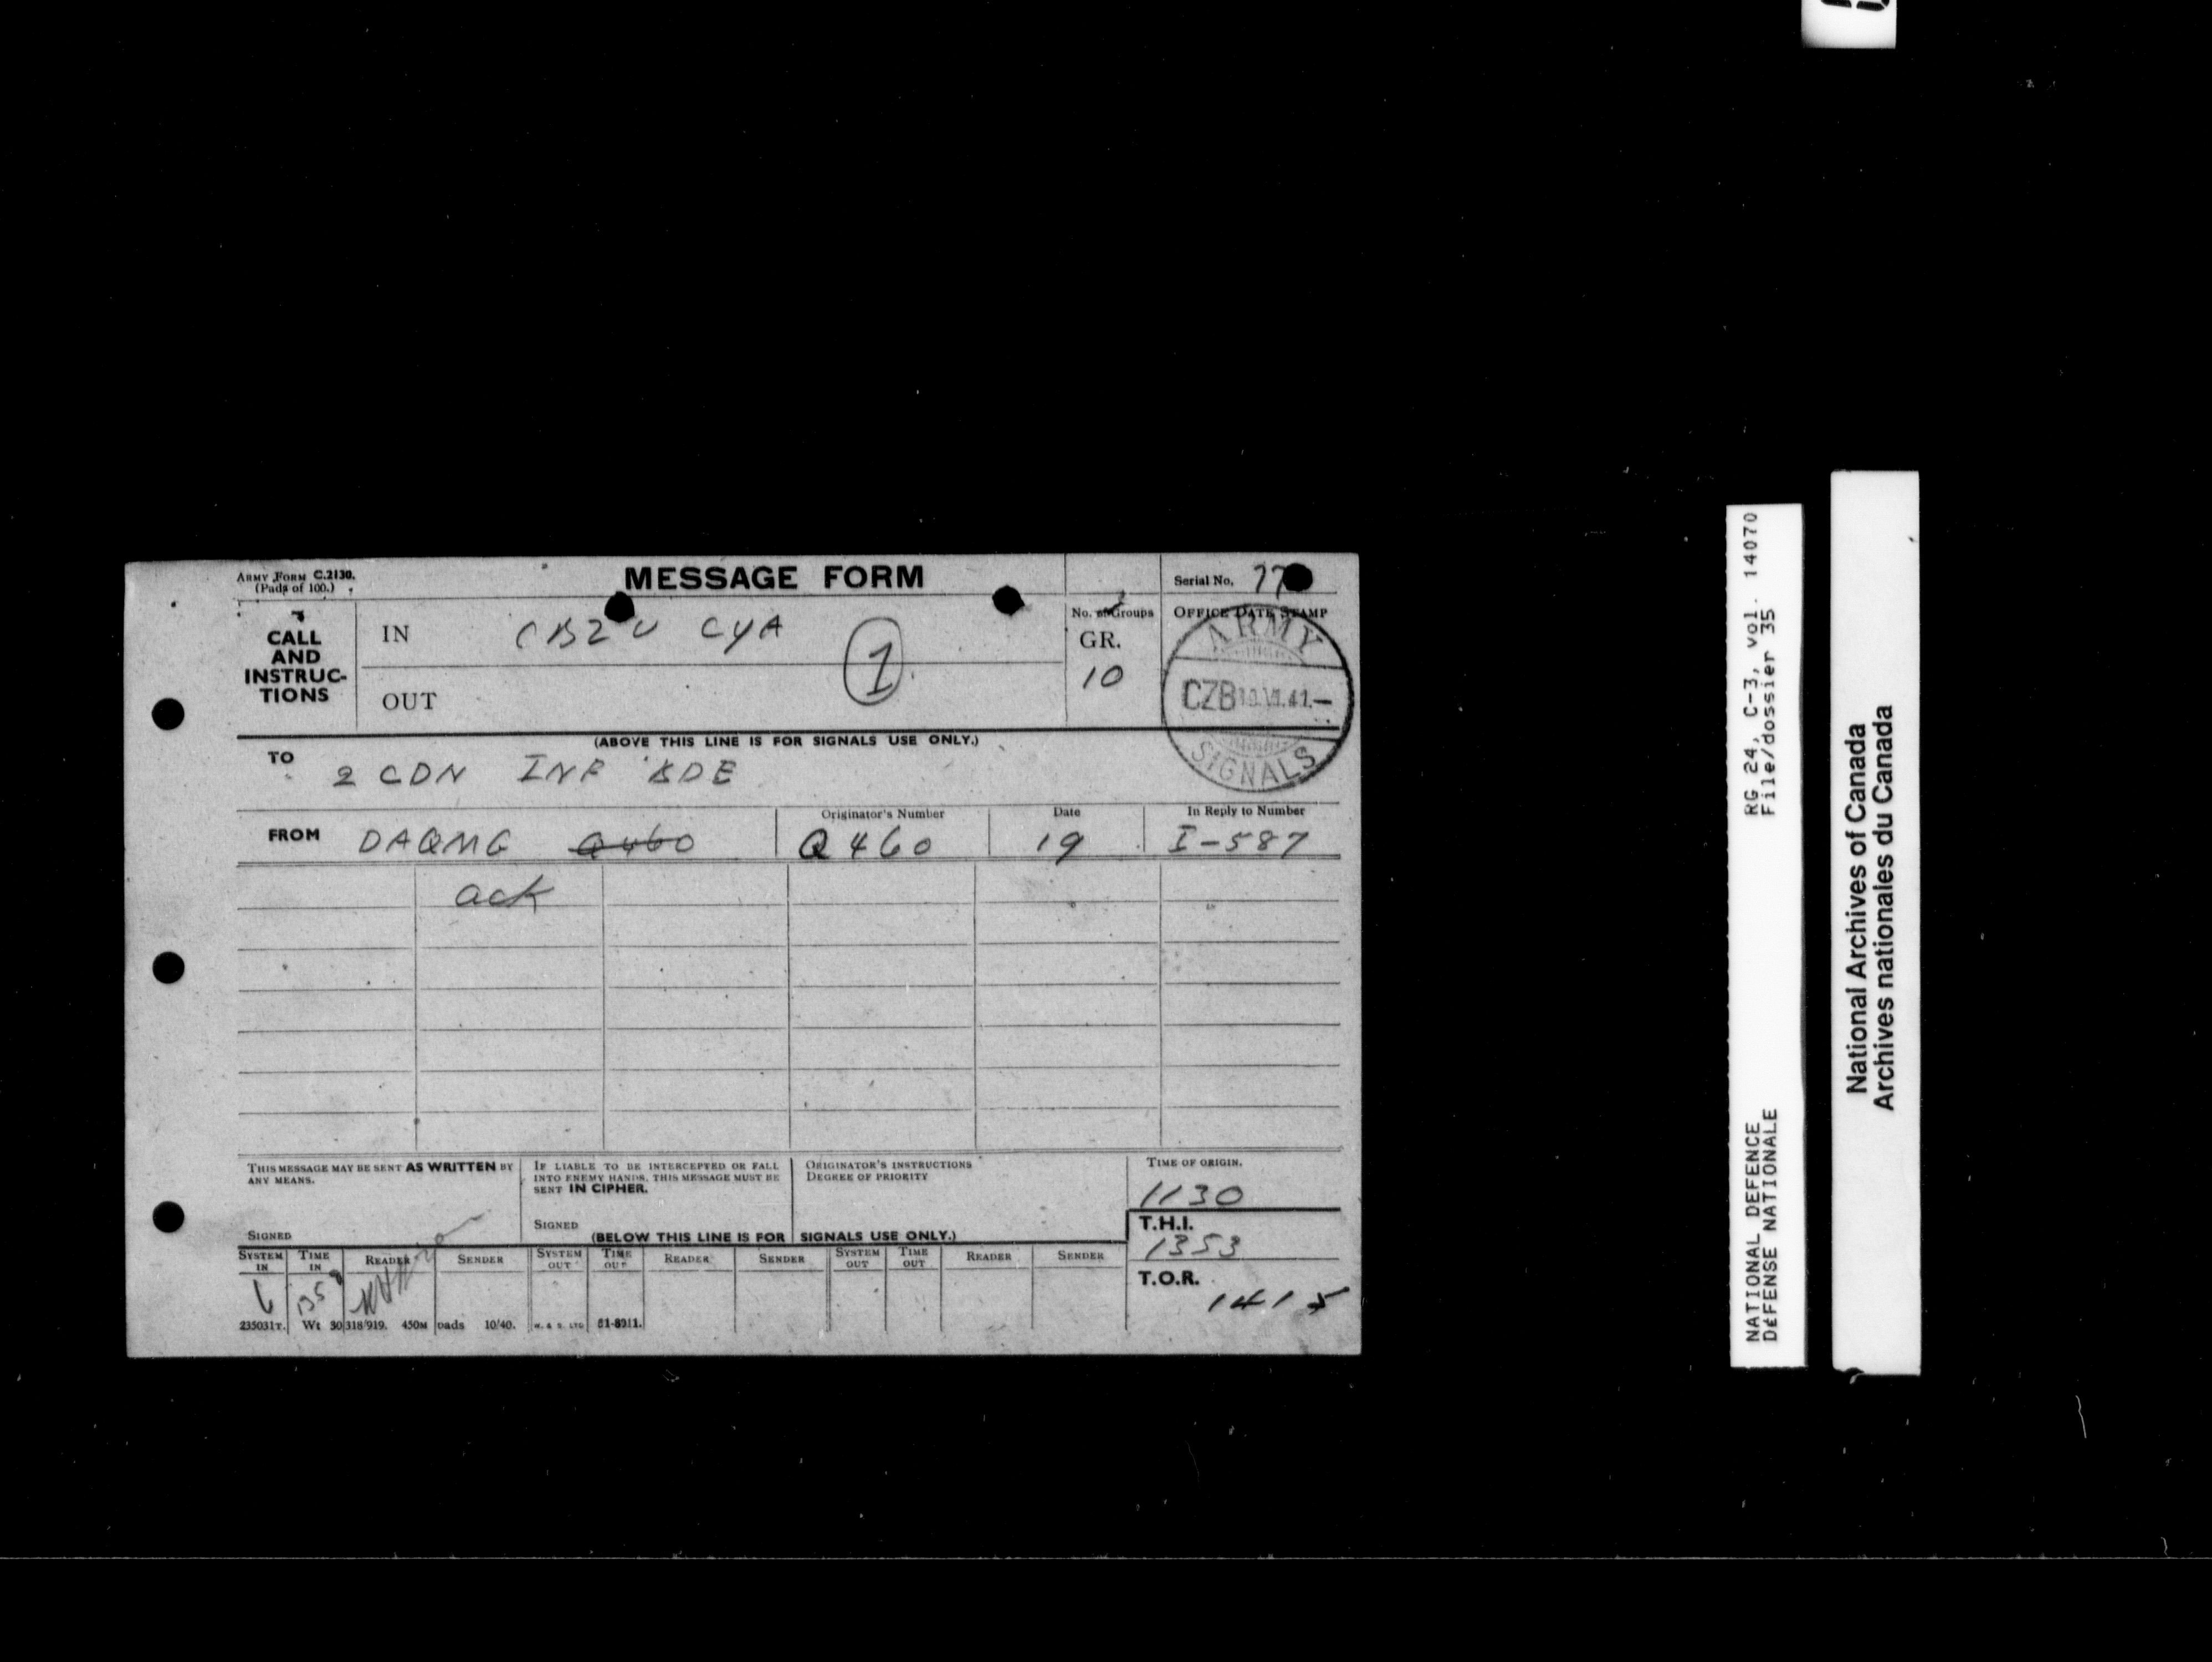 ARMY FORM C.2130.
(Pads of 100.)
MESSAGE FORM
Serial No. 77
CALL
AND
INSTRUC-
TIONS
IN CBZU CYA
1
OUT
No. of Groups
GR.
10
OFFICE DATE STAMP
ARMY
CZB 19.VI.41.—
SIGNALS
(ABOVE THIS LINE IS FOR SIGNALS USE ONLY.)
TO 2 CDN INF BDE
FROM DAQMG Q460
Originator's Number
Q460
Date
19
In Reply to Number
I-587
ack
THIS MESSAGE MAY BE SENT AS WRITTEN BY
ANY MEANS.
SIGNED
IF LIABLE TO BE INTERCEPTED OR FALL
INTO ENEMY HANDS, THIS MESSAGE MUST BE
SENT IN CIPHER.
SIGNED
ORIGINATOR'S INSTRUCTIONS
DEGREE OF PRIORITY
TIME OF ORIGIN.
1130
T.H.I.
1353
T.O.R.
1415
(BELOW THIS LINE IS FOR SIGNALS USE ONLY.)
SYSTEM IN TIME IN READER SENDER SYSTEM OUT TIME OUT READER SENDER SYSTEM OUT TIME OUT READER SENDER
235031T. Wt 30318/919. 450M pads 10/40. W. & S. LTD 51-8911.
RG 24, C-3, vol. 14070
File/dossier 35
NATIONAL DEFENCE
DÉFENSE NATIONALE
National Archives of Canada
Archives nationales du Canada